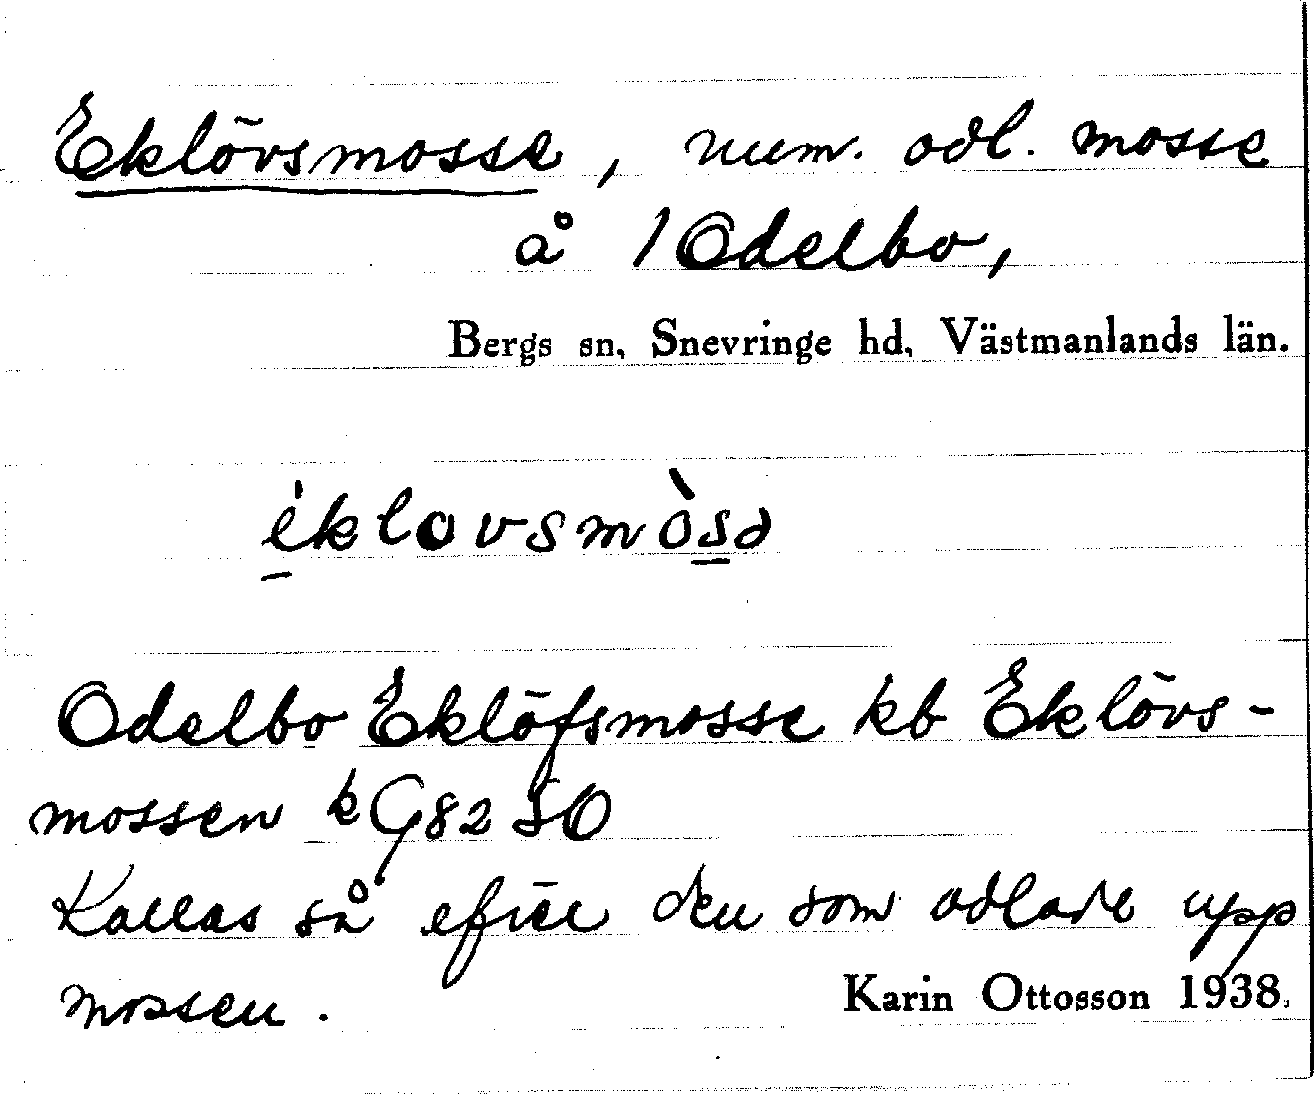 Eklövsmosse, num. odl. mosse
å 1 Odelbo,
Bergs sn, Snevringe hd, Västmanlands län.
èklovsmòsə
Odelbo Eklöfsmosse kb Eklövs-
mossen k G82 SO
Kallas så efter den som odlade upp
mossen.
Karin Ottosson 1938.